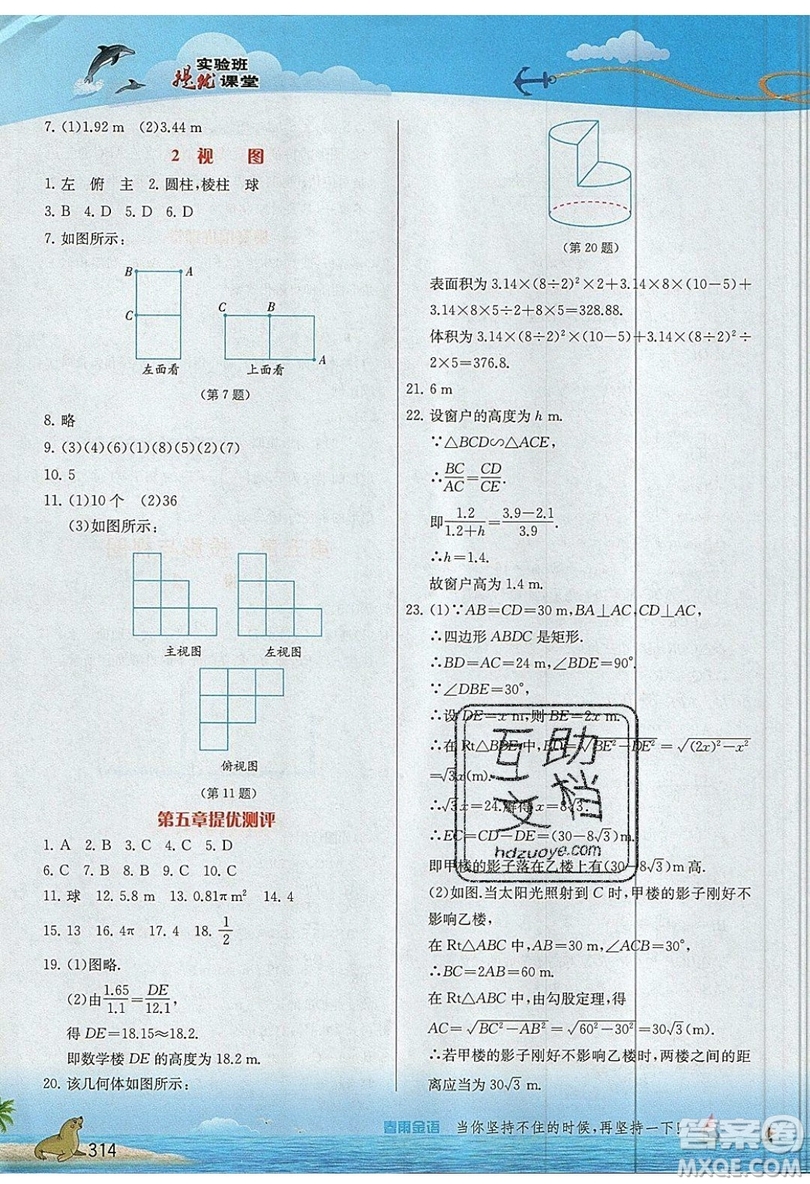 实验班
提优课堂
7. (1)1.92 m (2)3.44 m
2 视 图
1. 左 俯 主 2. 圆柱,棱柱 球
3. B 4. D 5. D 6. D
7. 如图所示:
B A
C
C B
A
左面看 上面看
(第 7 题)
8. 略
9. (3)(4)(6)(1)(5)(2)(7)
10. 5
11. (1)10 个 (2)36
(3)如图所示:
主视图 左视图
俯视图
(第 11 题)
第五章提优测评
1. A 2. B 3. C 4. C 5. D
6. C 7. D 8. C 9. C 10. D
11. 球 12. 5.8 m 13. 0.81π m² 14. 4
15. 13 16. 4π 17. 4 18. 1/2
19. (1)图略.
(2)由1.65/1.1=DE/12.1,
得 DE=18.15≈18.2.
即数学楼 DE 的高度为 18.2 m.
20. 该几何体如图所示:
(第 20 题)
表面积为 3.14×(8÷2)²×2+3.14×8×(10-5)+
3.14×8×5÷2+8×5=328.88.
体积为 3.14×(8÷2)²×(10-5)+3.14×(8÷2)²÷
2×5=376.8.
21. 6 m
22. 设窗户的高度为 h m.
∵△BCD∽△ACE,
∴BC/AC=CD/CE.
即1.2/(1.2+h)=(3.9-2.1)/3.9.
∴h=1.4.
故窗户高为 1.4 m.
23. (1)∵AB=CD=30 m,BA⊥AC,CD⊥AC,
∴四边形 ABDC 是矩形.
∴BD=AC=24 m,∠BDE=90°.
∵∠DBE=30°,
∴设 DE=x m,则 BE=2x m.
∴在 Rt△BDE 中,BD=√(BE²-DE²)=√((2x)²-x²)
=√3x(m).
∴√3x=24.解得 x=8√3.
∴EC=CD-DE=(30-8√3)m.
即甲楼的影子落在乙楼上有(30-8√3)m 高.
(2)如图.当太阳光照射到 C 时,甲楼的影子刚好不
影响乙楼,
在 Rt△ABC 中,AB=30 m,∠ACB=30°,
∴BC=2AB=60 m.
在 Rt△ABC 中,由勾股定理,得
AC=√(BC²-AB²)=√(60²-30²)=30√3(m).
∴若甲楼的影子刚好不影响乙楼,两楼之间的距
离应当为 30√3 m.
互助
文档
hdzuoye.com
314
春雨金语 当你坚持不住的时候,再坚持一下!
答案圈
MXQE.COM